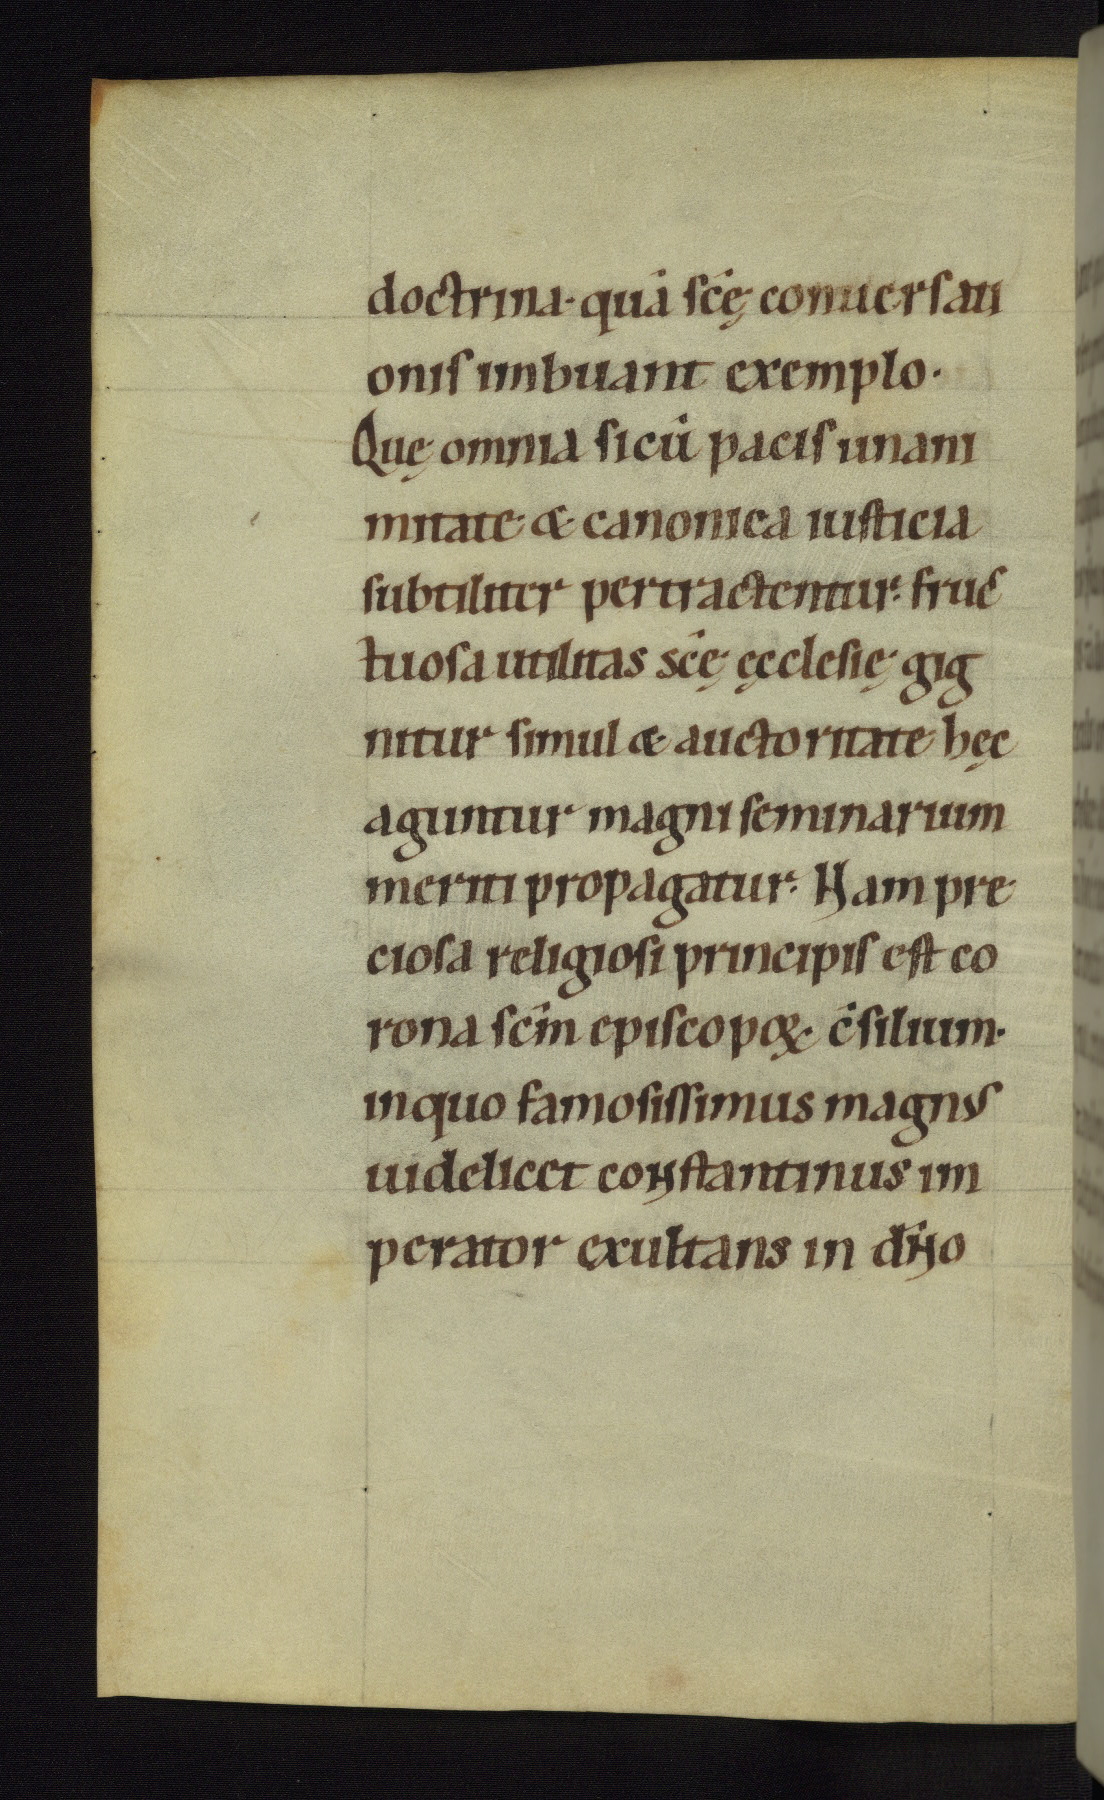 doctrina · quā sc̄ę conuersati
onis imbuant exemplo ·
Quę omnia si cū pacis unani
mitate · & canonica iusticia
subtiliter pertractentur · fruc̄
tuosa utilitas sc̄ę ęcclesię · gig
nitur simul & auctoritate hęc
aguntur magni seminarium
meriti propagatur · Nam pre
ciosa religiosi principis est co
rona sc̄m episcopoꝝ · c̄silium ·
in quo famosissimus magnus
uidelicet constantinus im
perator exultans in dn̄o